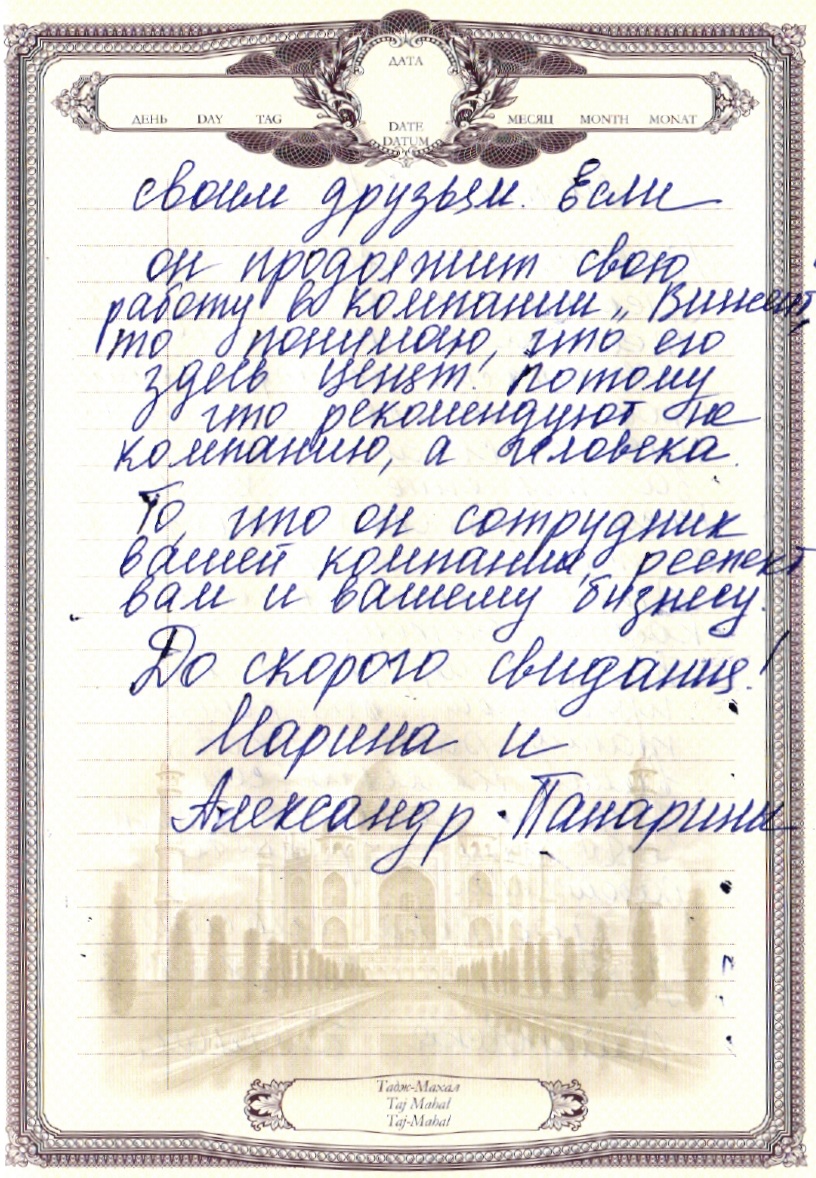 ДАТА
ДЕНЬ DAY TAG
DATE
DATUM
МЕСЯЦ MONTH MONAT
своим друзьям. Если
он продолжит свою
работу в компании „Винсент"
то понимаю, что его
здесь ценят! потому
что рекомендуют не
компанию, а человека.
То, что он сотрудник
вашей компании, респект
вам и вашему бизнесу.
До скорого свидания!
Марина и
Александр Панарины
Тадж-Махал
Taj Mahal
Taj-Mahal